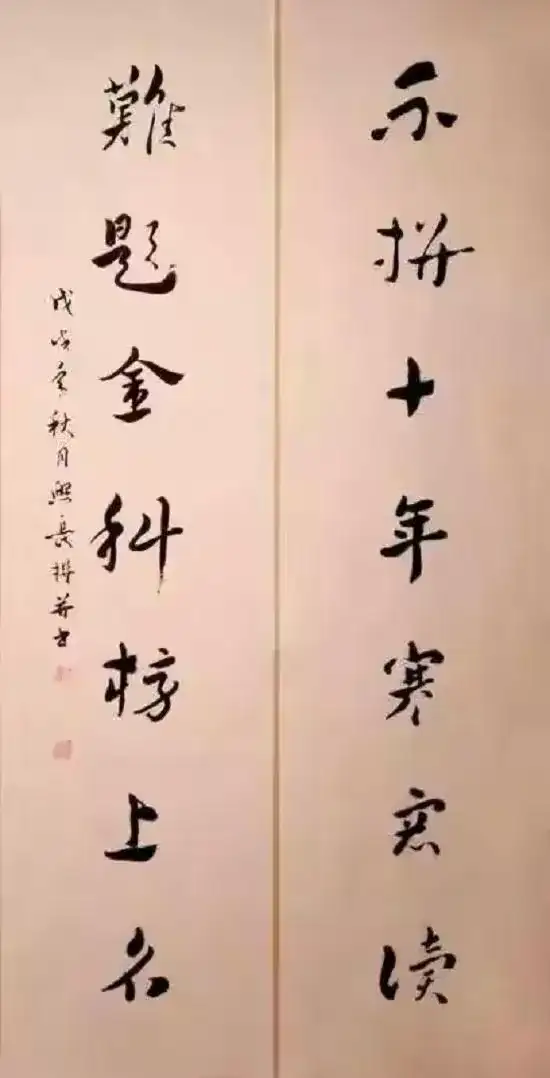 不拼十年寒窓读
難题金科榜上名
戊戌年秋月熙長撰并书